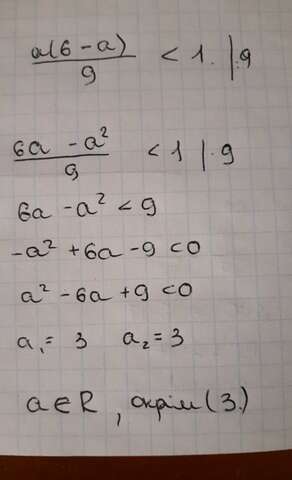 a(6 - a)/9 < 1. | 9
6a - a²/9 < 1 | · 9
6a - a² < 9
-a² + 6a - 9 < 0
a² - 6a + 9 < 0
a₁ = 3 a₂ = 3
a ∈ R, окрім (3.)